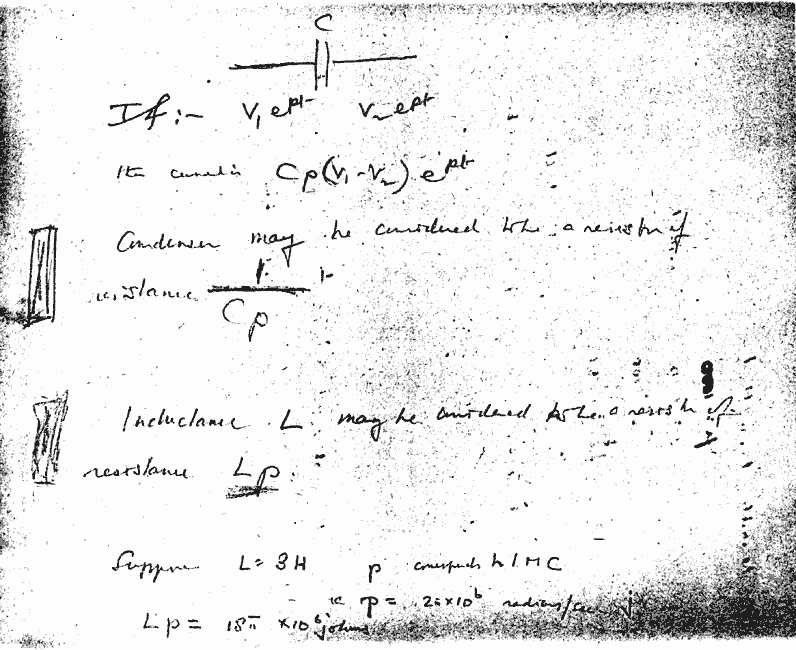 C
If :- V₁ e^pt V₂ e^pt
the current is Cp(V₁ - V₂) e^pt
Condenser may be considered to be a resistor of
resistance 1/Cp
Inductance L may be considered to be a resistor of
resistance Lp.
Suppose L = 3H p corresponds to 1 MC
ie p = 2π×10⁶ radians/sec j
Lp = 18π ×10⁶ j ohms